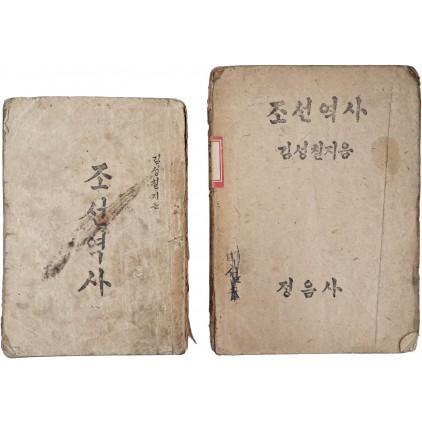 김성칠지은
조선역사
조선역사
김성칠지음
정음사